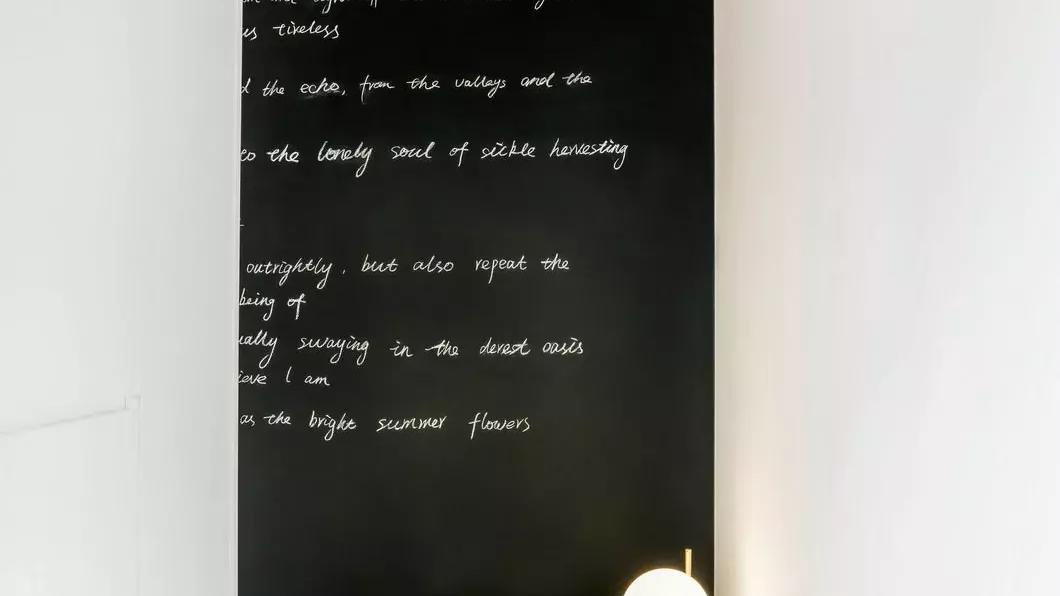 tireless
the echo, from the valleys and the
to the lonely soul of sickle hervesting
outrightly, but also repeat the
being of
swaying in the derest oasis
I am
as the bright summer flowers